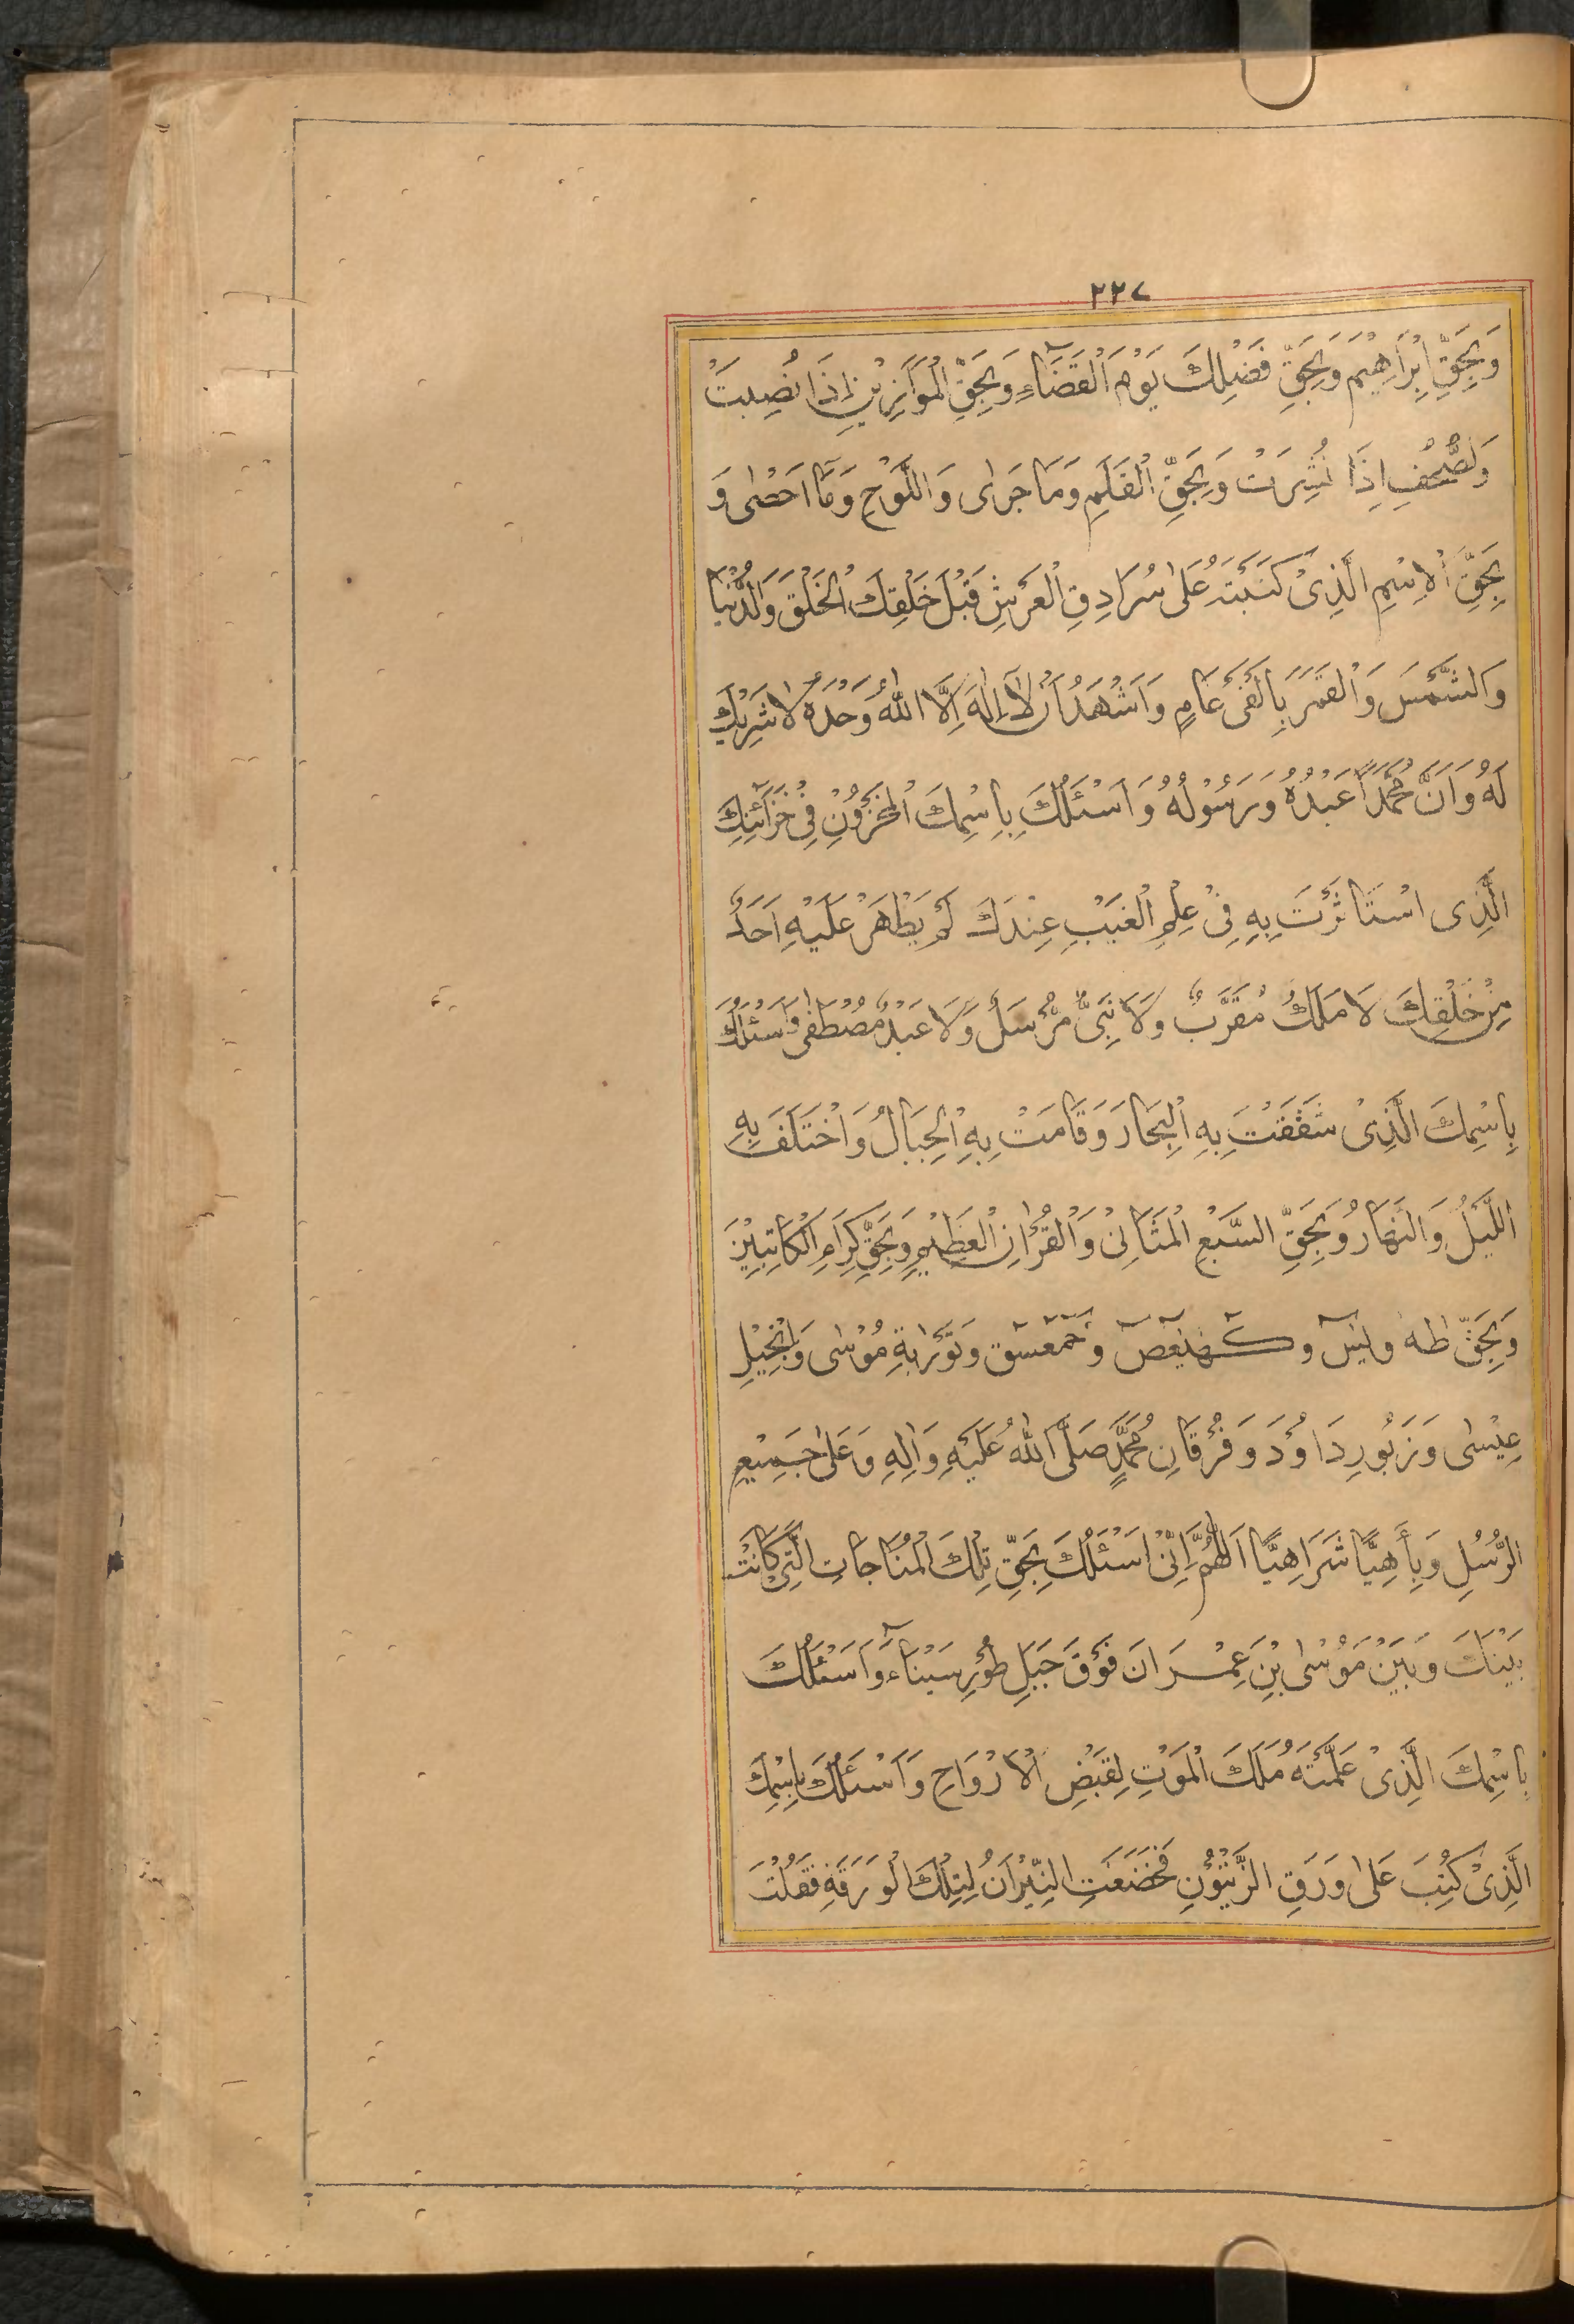 ٢٢٧
وَبِحَقِّ اِبْرَاهِيْمَ وَبِحَقِّ فَضْلِكَ يَوْمَ الْقَضَآءِ وَبِحَقِّ الْمَوَازِيْنِ اِذَا نُصِبَتْ
وَلصُّحُفِ اِذَا نُشِرَتْ وَبِحَقِّ الْقَلَمِ وَمَا جَرٰى وَاللَّوْحِ وَمَآ اَحْصٰى وَ
بِحَقِّ الْاِسْمِ الَّذِىْ كَتَبْتَهُ عَلٰى سُرَادِقِ الْعَرْشِ قَبْلَ خَلْقِكَ الْخَلْقَ وَالدُّنْيَا
وَالشَّمْسَ وَالْقَمَرَ بِاَلْفَىْ عَامٍ وَاَشْهَدُ اَنْ لَآ اِلٰهَ اِلَّا اللّٰهُ وَحْدَهُ لَا شَرِيْكَ
لَهُ وَاَنَّ مُحَمَّدًا عَبْدُهُ وَرَسُوْلُهُ وَاَسْئَلُكَ بِاِسْمِكَ الْمَخْزُوْنِ فِىْ خَزَآئِنِكَ
الَّذِى اسْتَاْثَرْتَ بِهِ فِىْ عِلْمِ الْغَيْبِ عِنْدَكَ لَمْ يَظْهَرْ عَلَيْهِ اَحَدٌ
مِنْ خَلْقِكَ لَا مَلَكٌ مُقَرَّبٌ وَلَا نَبِىٌّ مُرْسَلٌ وَلَا عَبْدٌ مُصْطَفٰى وَاَسْئَلُكَ
بِاسْمِكَ الَّذِىْ شَقَقْتَ بِهِ الْبِحَارَ وَقَامَتْ بِهِ الْجِبَالُ وَاخْتَلَفَ بِهِ
اللَّيْلُ وَالنَّهَارُ وَبِحَقِّ السَّبْعِ الْمَثَانِىْ وَالْقُرْاٰنِ الْعَظِيْمِ وَبِحَقِّ كِرَامِ الْكَاتِبِيْنَ
وَبِحَقِّ طٰهٰ وَيٰسٓ وَكٓهٰيٰعٓصٓ وَحٰمٓعٓسٓقٓ وَتَوْرٰيةِ مُوْسٰى وَاِنْجِيْلِ
عِيْسٰى وَزَبُورِ دَاوُدَ وَفُرْقَانِ مُحَمَّدٍ صَلَّى اللّٰهُ عَلَيْهِ وَاٰلِهِ وَعَلٰى جَمِيْعِ
الرُّسُلِ وَبِأَهِيًّا شَرَاهِيًّا اَللّٰهُمَّ اِنِّىْ اَسْئَلُكَ بِحَقِّ تِلْكَ الْمُنَاجَاتِ الَّتِىْ كَانَتْ
بَيْنَكَ وَبَيْنَ مُوْسٰى بْنِ عِمْرَانَ فَوْقَ جَبَلِ طُوْرِ سَيْنَآءَ وَاَسْئَلُكَ
بِاسْمِكَ الَّذِىْ عَلَّمْتَهُ مَلَكَ الْمَوْتِ لِقَبْضِ الْاَرْوَاحِ وَاَسْئَلُكَ بِاسْمِكَ
الَّذِىْ كُتِبَ عَلٰى وَرَقِ الزَّيْتُوْنِ فَخَضَعَتِ النِّيْرَانُ لِتِلْكَ الْوَرَقَةِ فَقُلْتَ